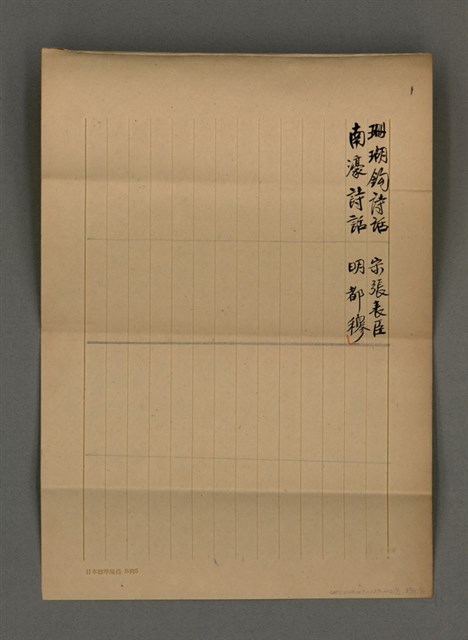 珊瑚鈎詩話　宋張表臣
南濠詩話　明都穆